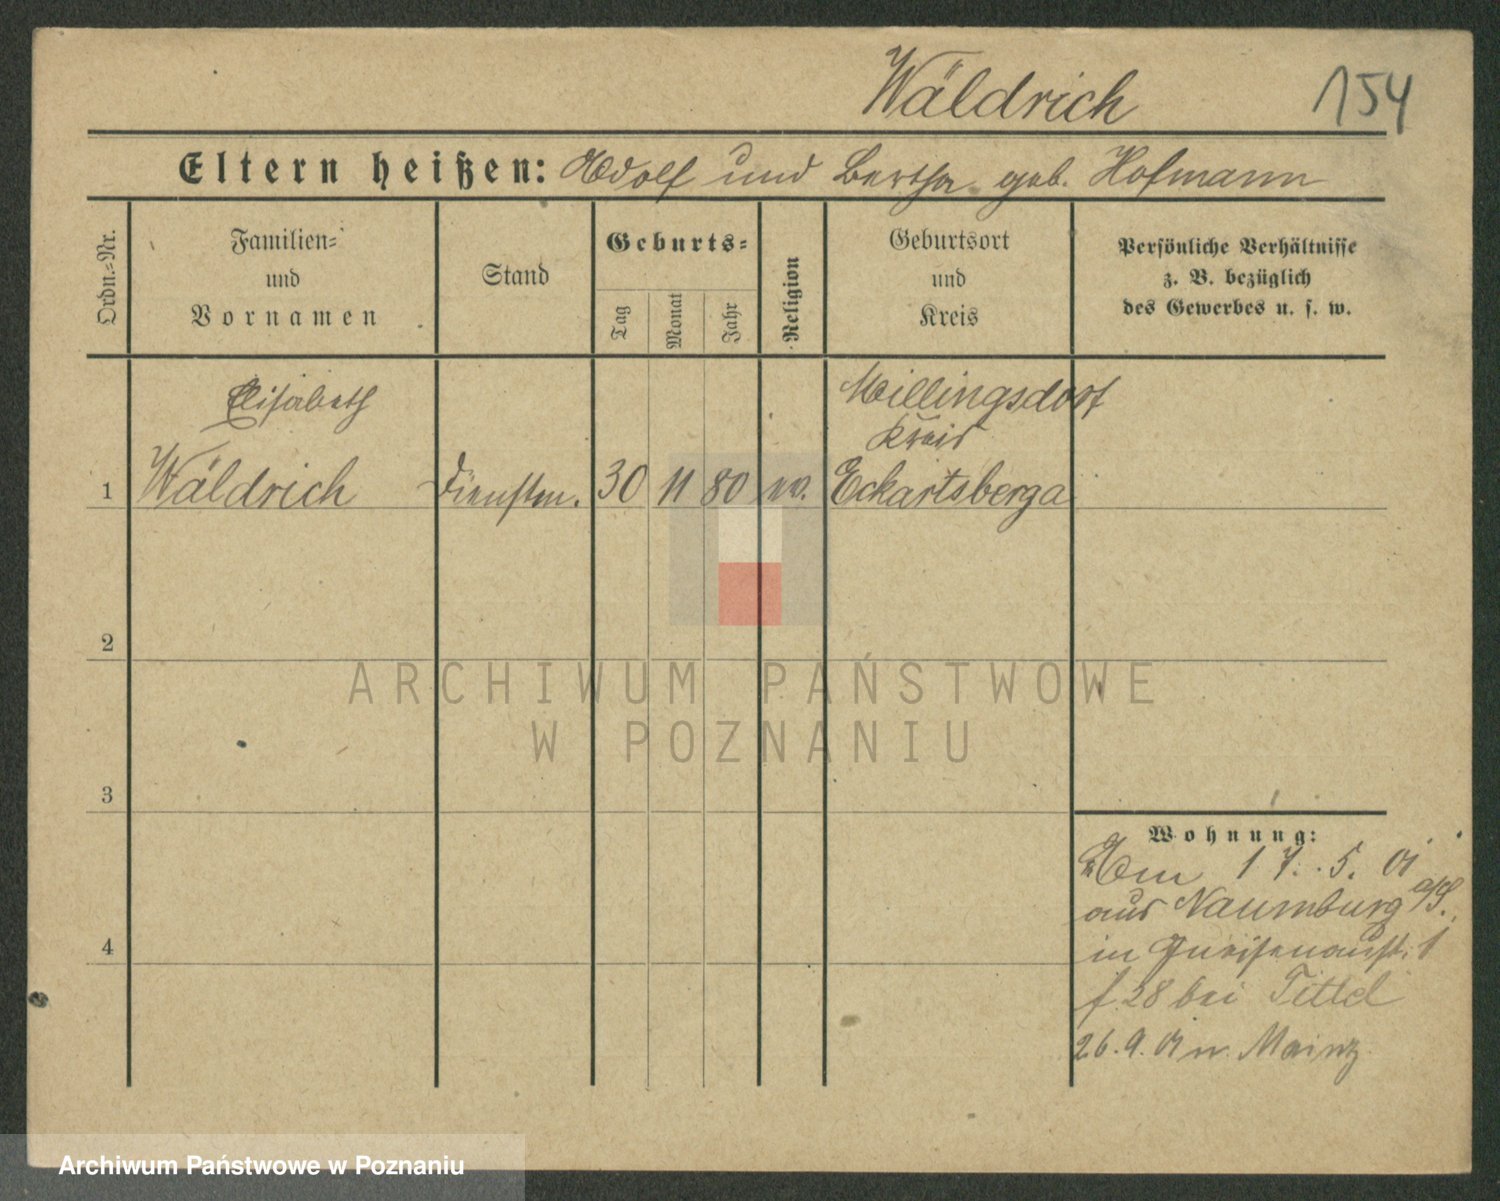 Wäldrich
154
Eltern heißen: Adolf und Bertha geb. Hofmann
Ordn.-Nr.
Familien-
und
Vornamen
Stand
Geburts-
Tag
Monat
Jahr
Religion
Geburtsort
und
Kreis
Persönliche Verhältnisse
z. B. bezüglich
des Gewerbes u. s. w.
Elisabeth
Millingsdorf
Kreis
1 Wäldrich Dienstm. 30 11 80 ev. Eckartsberga
2
ARCHIWUM PAŃSTWOWE
W POZNANIU
3
Wohnung:
Am 17.5.01
aus Naumburg a/S.
in Gneisenaustr. 1
f. 28 bei Tittel
26.9.01 n. Mainz
4
Archiwum Państwowe w Poznaniu